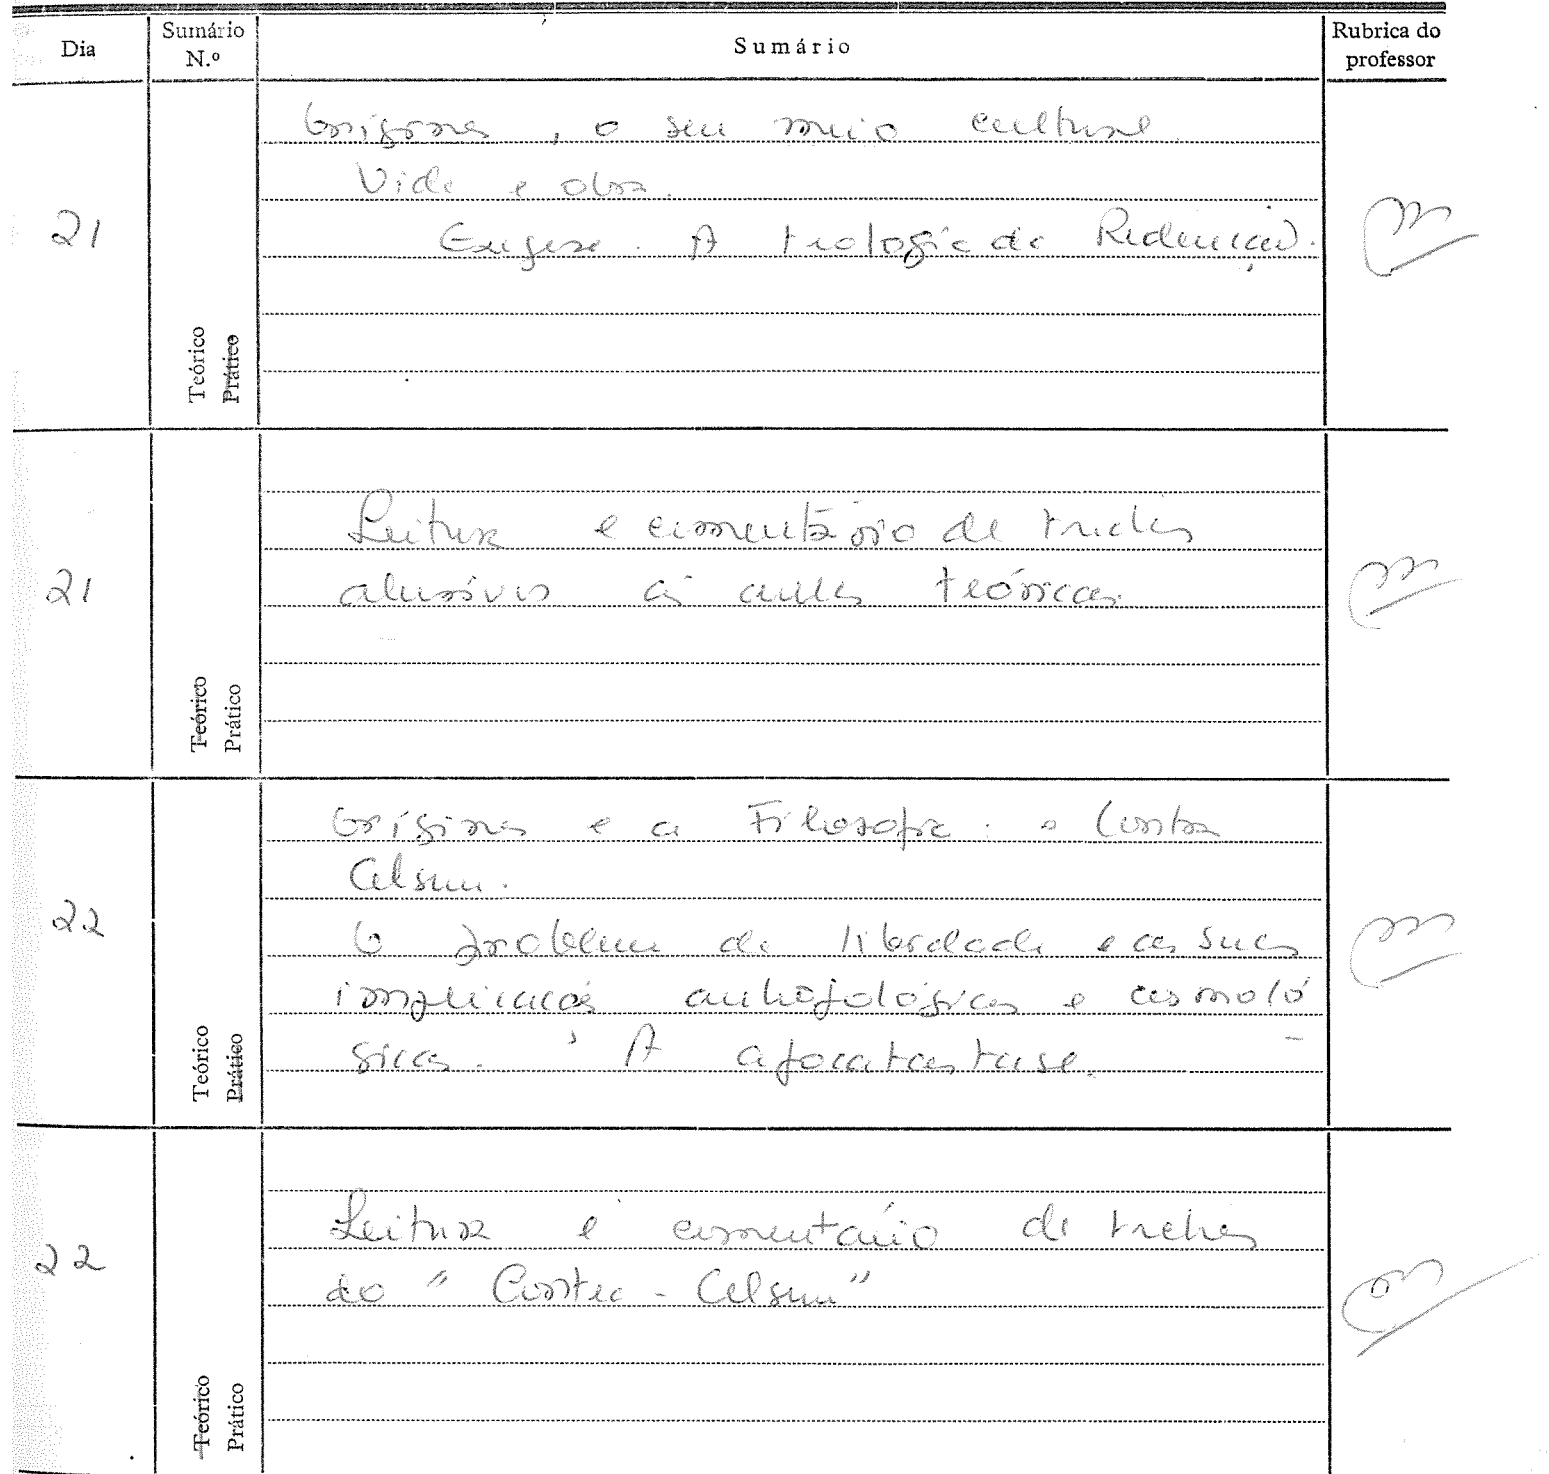 Dia
Sumário N.º
Sumário
Rubrica do professor
21
Orígenes, o seu meio cultural.
Vida e obra.
Exegese. A teologia da Redenção.
Teórico
Prático
21
Leitura e comentário de trechos
alusivos às aulas teóricas.
Teórico
Prático
22
Orígenes e a Filosofia: o Contra
Celsum.
O problema da liberdade e as suas
implicações antropológicas e cosmoló
gicas. A apocatastase.
Teórico
Prático
22
Leitura e comentário de trechos
do "Contra-Celsum"
Teórico
Prático